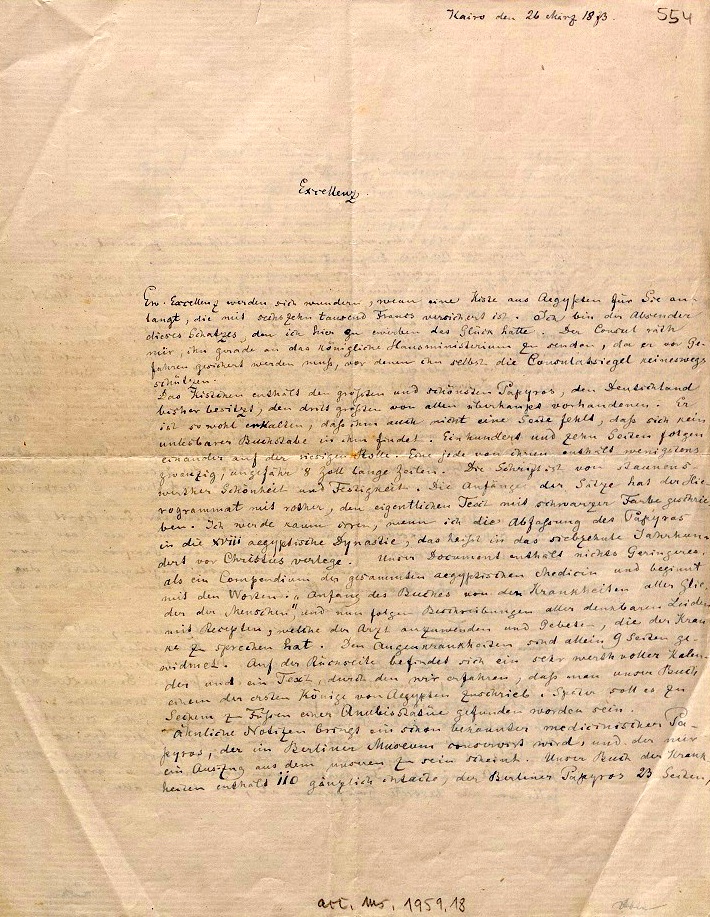 Kairo den 26 März 1873.
554
Excellenz.
Ew. Excellenz werden sich wundern, wenn eine Kiste aus Aegypten für Sie an-
langt, die mit sechszehn tausend Francs versichert ist. Ich bin der Absender
dieses Schatzes, den ich hier zu erwerben das Glück hatte. Der Consul räth
mir, ihn gerade an das königliche Hausministerium zu senden, da er vor Ge-
fahren gesichert werden muß, vor denen ihn selbst die Consulatssiegel keineswegs
schützen.
Das Kistchen enthält den größten und schönsten Papyros, den Deutschland
bisher besitzt, den dritt größten von allen überhaupt vorhandenen. Er
ist so wohl erhalten, daß ihm auch nicht eine Seite fehlt, daß sich kein
unlesbarer Buchstabe in ihm findet. Einhundert und zehn Seiten folgen
einander auf der riesigen Rolle. Eine jede von ihnen enthält wenigstens
zwanzig, ungefähr 8 Zoll lange Zeilen. Die Schrift ist von staunens
werther Schönheit und Festigkeit. Die Anfänge der Sätze hat der Hie-
rogrammat mit rother, den eigentlichen Text mit schwarzer Farbe geschrie
ben. Ich werde kaum irren, wenn ich die Abfassung des Papyros
in die XVIII aegyptische Dynastie, das heißt in das siebzehnte Jahrhun-
dert vor Christus verlege. Unser Document enthält nichts Geringeres,
als ein Compendium der gesammten aegyptischen Medicin und beginnt
mit den Worten: „Anfang des Buches von den Krankheiten aller Glie-
der der Menschen", und nun folgen Beschreibungen aller denkbaren Leiden
mit Recepten, welche der Arzt anzuwenden und Gebeten, die der Kran
ke zu sprechen hat. Den Augenkrankheiten sind allein 9 Seiten ge-
widmet. Auf der Rückseite befindet sich ein sehr werthvoller Kalen-
der und ein Text, durch den wir erfahren, daß man unser Buch
einem der ersten Könige von Aegypten zuschrieb. Später soll es zu
Sechem zu Füßen einer Anubisstatue gefunden worden sein.
Ähnliche Notizen bringt ein schon bekannter medicinischer Pa-
pyros, der im Berliner Museum conservirt wird, und der mir
ein Auszug aus dem unseren zu sein scheint. Unser Buch der Krank
heiten enthält 110 gänzlich intacte, der Berliner Papyros 23 Seiten,
acc. ms. 1959.18